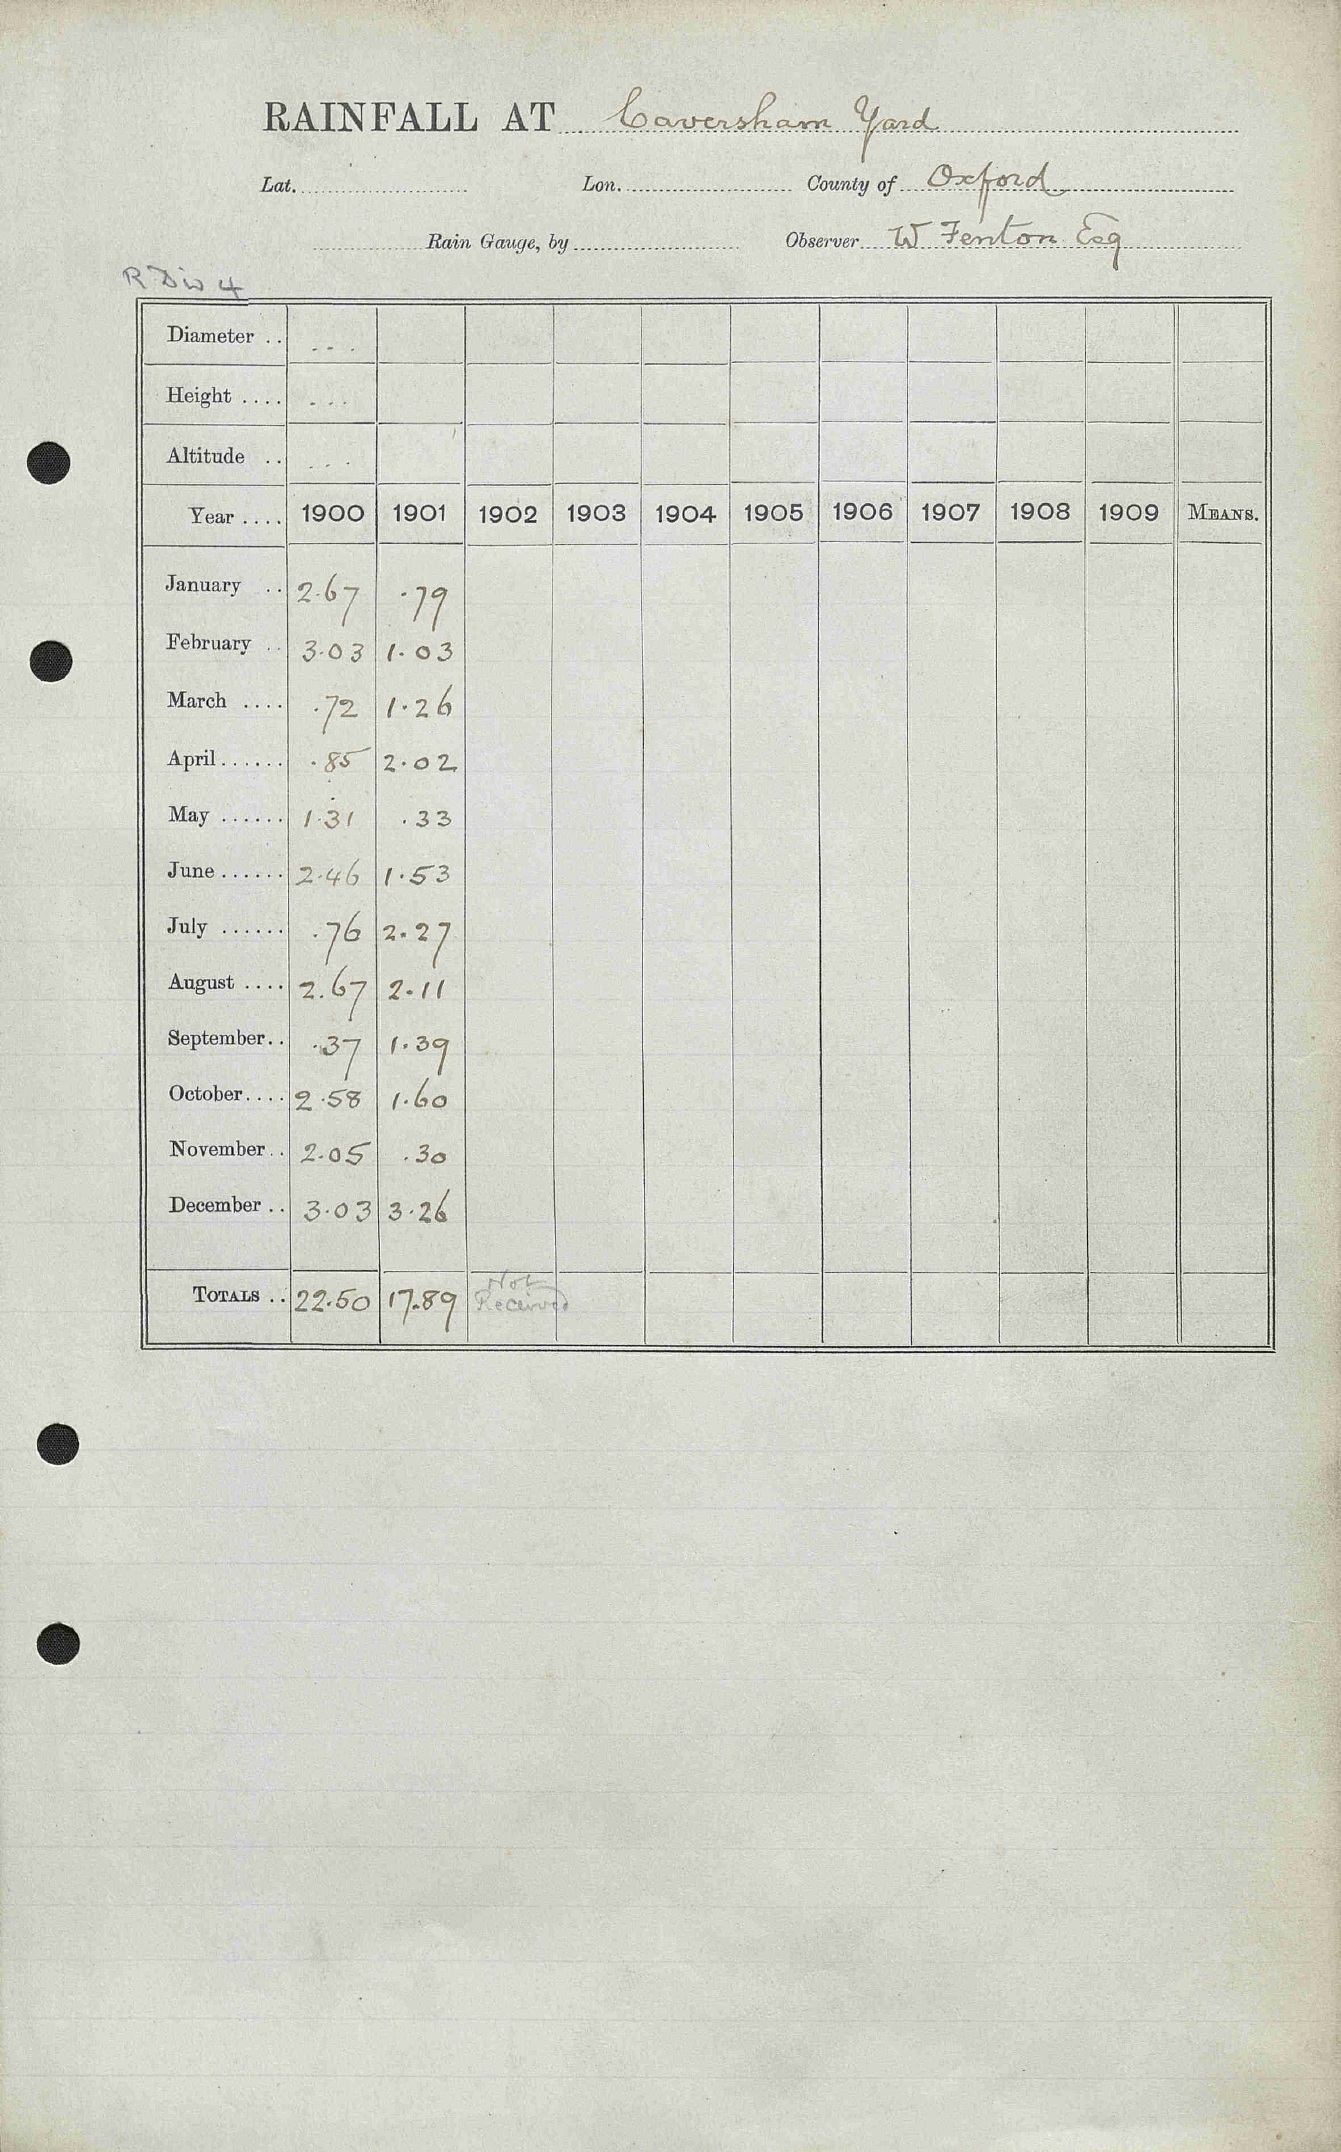 RAINFALL AT Caversham Yard
Lat. Lon. County of Oxford
Rain Gauge, by Observer W Fenton Esq
R Div 4
Diameter .. ...
Height .... ...
Altitude .. ...
Year .... 1900 1901 1902 1903 1904 1905 1906 1907 1908 1909 MEANS.
January .. 2.67 .79
February .. 3.03 1.03
March .... .72 1.26
April ...... .85 2.02
May ...... 1.31 .33
June ...... 2.46 1.53
July ...... .76 2.27
August .... 2.67 2.11
September .. .37 1.39
October .... 2.58 1.60
November .. 2.05 .30
December .. 3.03 3.26
TOTALS .. 22.50 17.89 Not Received